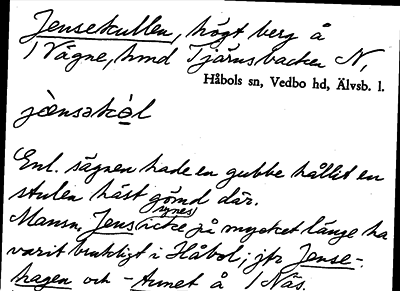 Jensekullen, högt berg å
1 Vägne, hmd Tjärnsbacken N,
Håbols sn, Vedbo hd, Älvsb. l.
jènsəkòl
Enl. sägnen hade en gubbe hållit en
stulen häst gömd där.
Mansn. Jens synes icke på mycket länge ha
varit brukligt i Håbol; jfr Jense-
hagen och -tumet å 1 Näs.